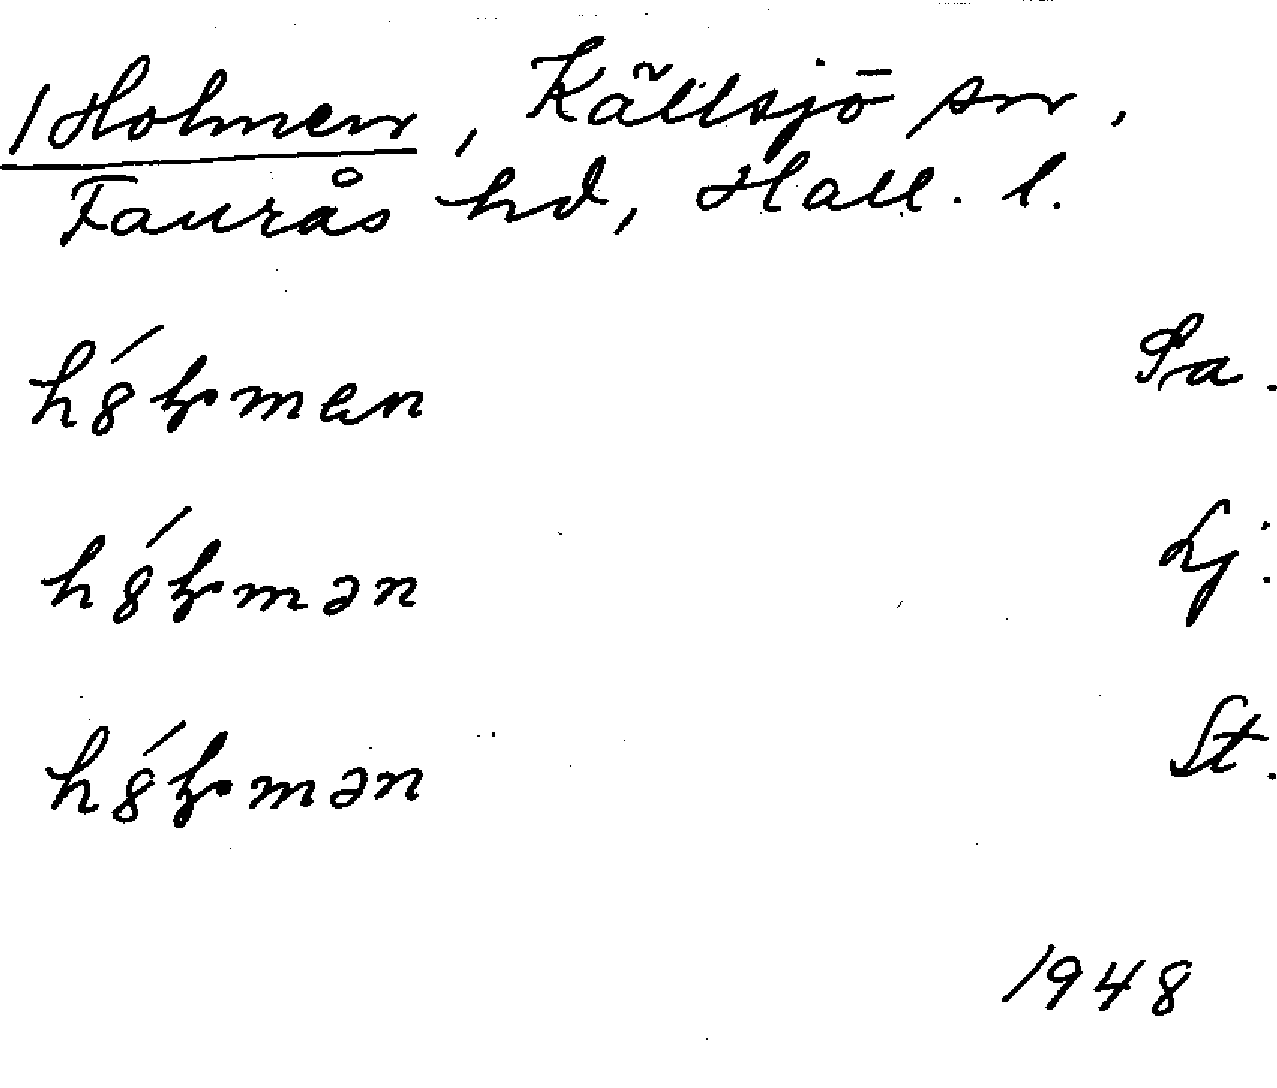 1 Holmen, Källsjö sn,
Faurås hd, Hall. l.
hȣ́ɫmen Sa.
hȣ́ɫmən Lj.
hȣ́ɫmən St.
1948